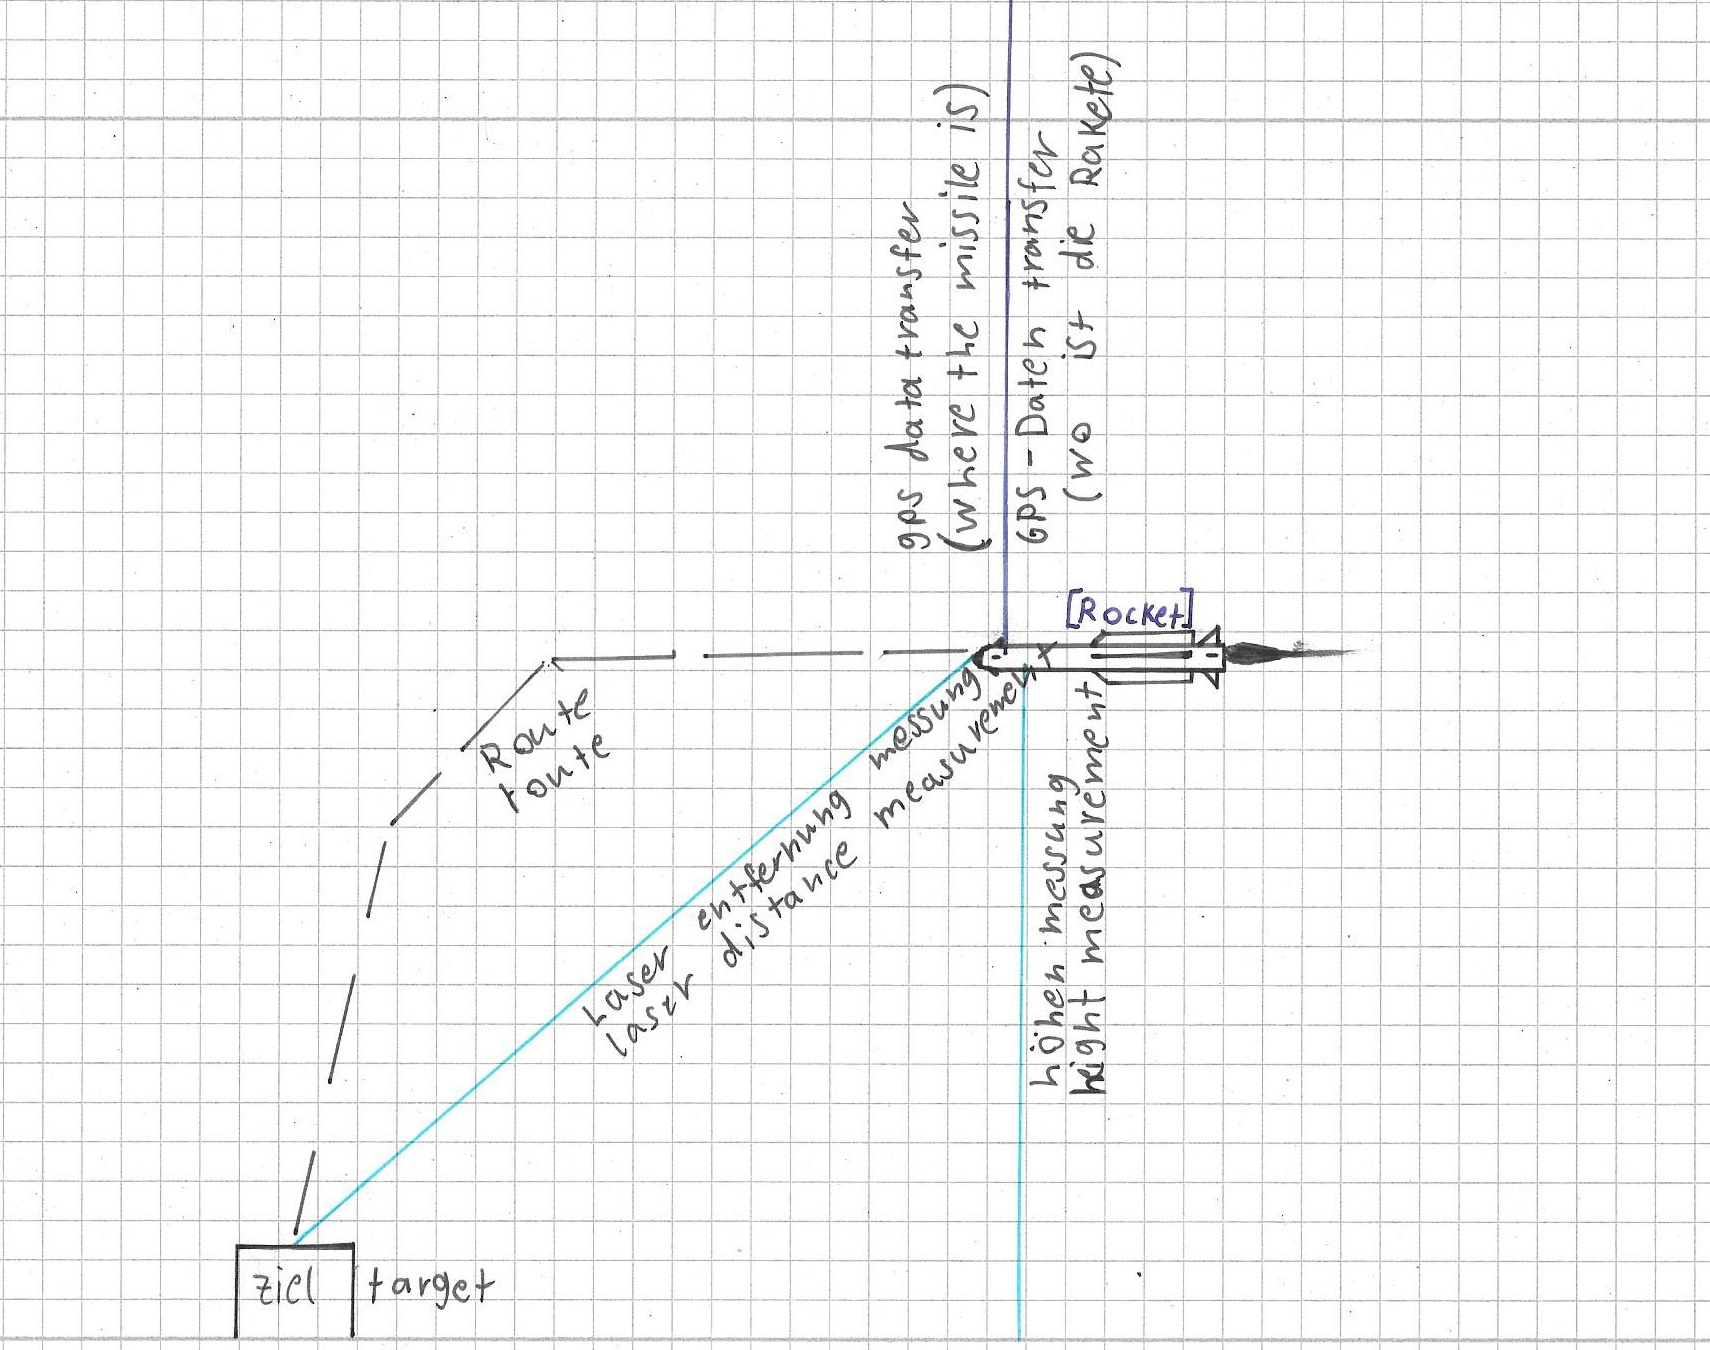 gps data transfer
(where the missile is)
GPS-Daten transfer
(wo ist die Rakete)
[Rocket]
Route
route
Laser entfernung messung
laser distance measurement
höhen messung
height measurement
ziel
target